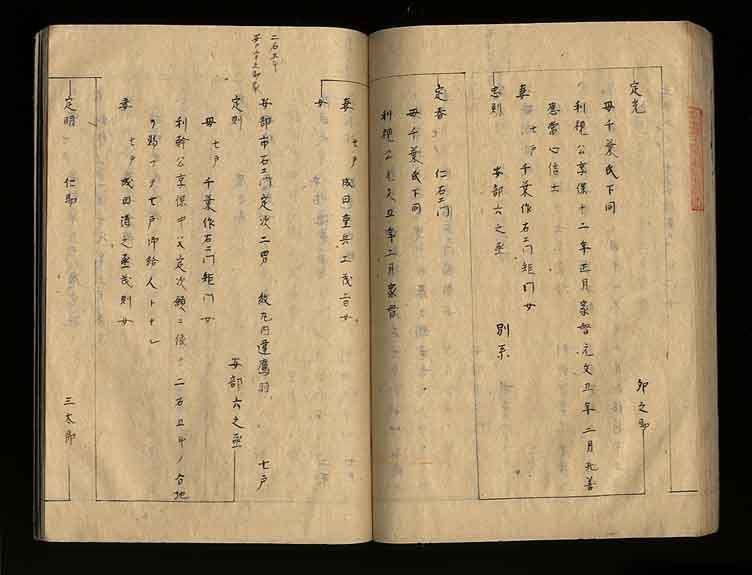 定光 卯之助
母 千葉氏下同
利視公享保十二年正月家督元文五年二月死善
應常心信士
妻 七戸 千葉作右エ門矩門女
忠則 安部六之丞 別系
定香 仁右エ門
母 千葉氏下同
利視公元文五年二月家督
妻 七戸 成田重兵エ茂 女
女
二石五斗
安部市右エ門定次二男 紋丸内違鷹羽 七戸
定則 安部六之丞
母 七戸 千葉作右エ門矩門女
利幹公享保中父定次願ニ依テ二石五斗ノ合地
七戸御給人トナル
妻 七戸 成田清之丞茂則女
定晴 仁助 三太郎